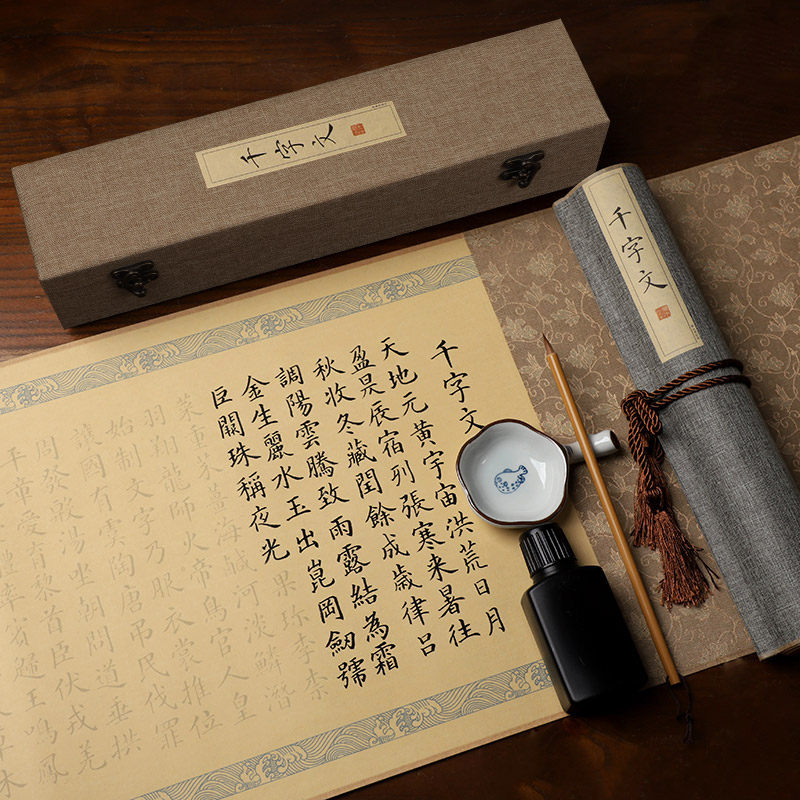 千字文
千字文
千字文
天地元黄宇宙洪荒日月
盈昃辰宿列張寒来暑往
秋收冬藏閏餘成歲律吕
調陽雲騰致雨露結為霜
金生麗水玉出崑岡劒號
巨闕珠稱夜光果珍李柰
菜重芥薑海鹹河淡鱗潛
羽翔龍師火帝鳥官人皇
始制文字乃服衣裳推位
讓國有虞陶唐吊民伐罪
周發殷湯坐朝問道垂拱
平章愛育黎首臣伏戎羌
體率賓歸王鳴鳳
草木